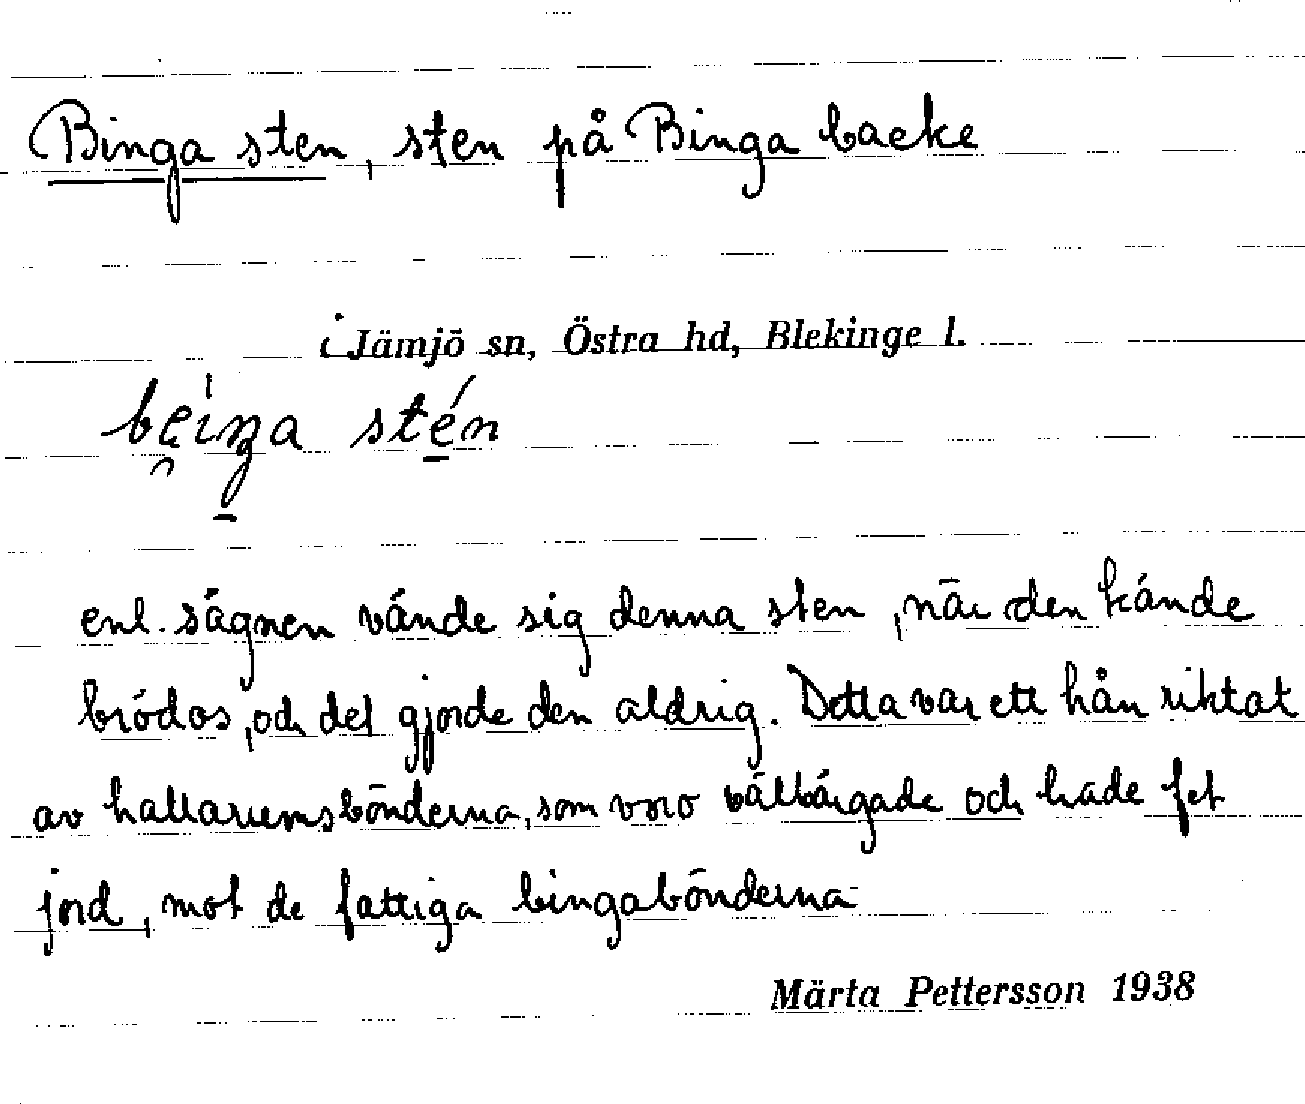 Binga sten, sten på Binga backe
i Jämjö sn, Östra hd, Blekinge l.
sten
enl. sägnen vände sig denna sten, när den kände
brödos, och det gjorde den aldrig. Detta var ett hån riktat
av hallaremsbönderna, som voro välbärgade och hade fet
jord, mot de fattiga bingabönderna
Märta Pettersson 1938